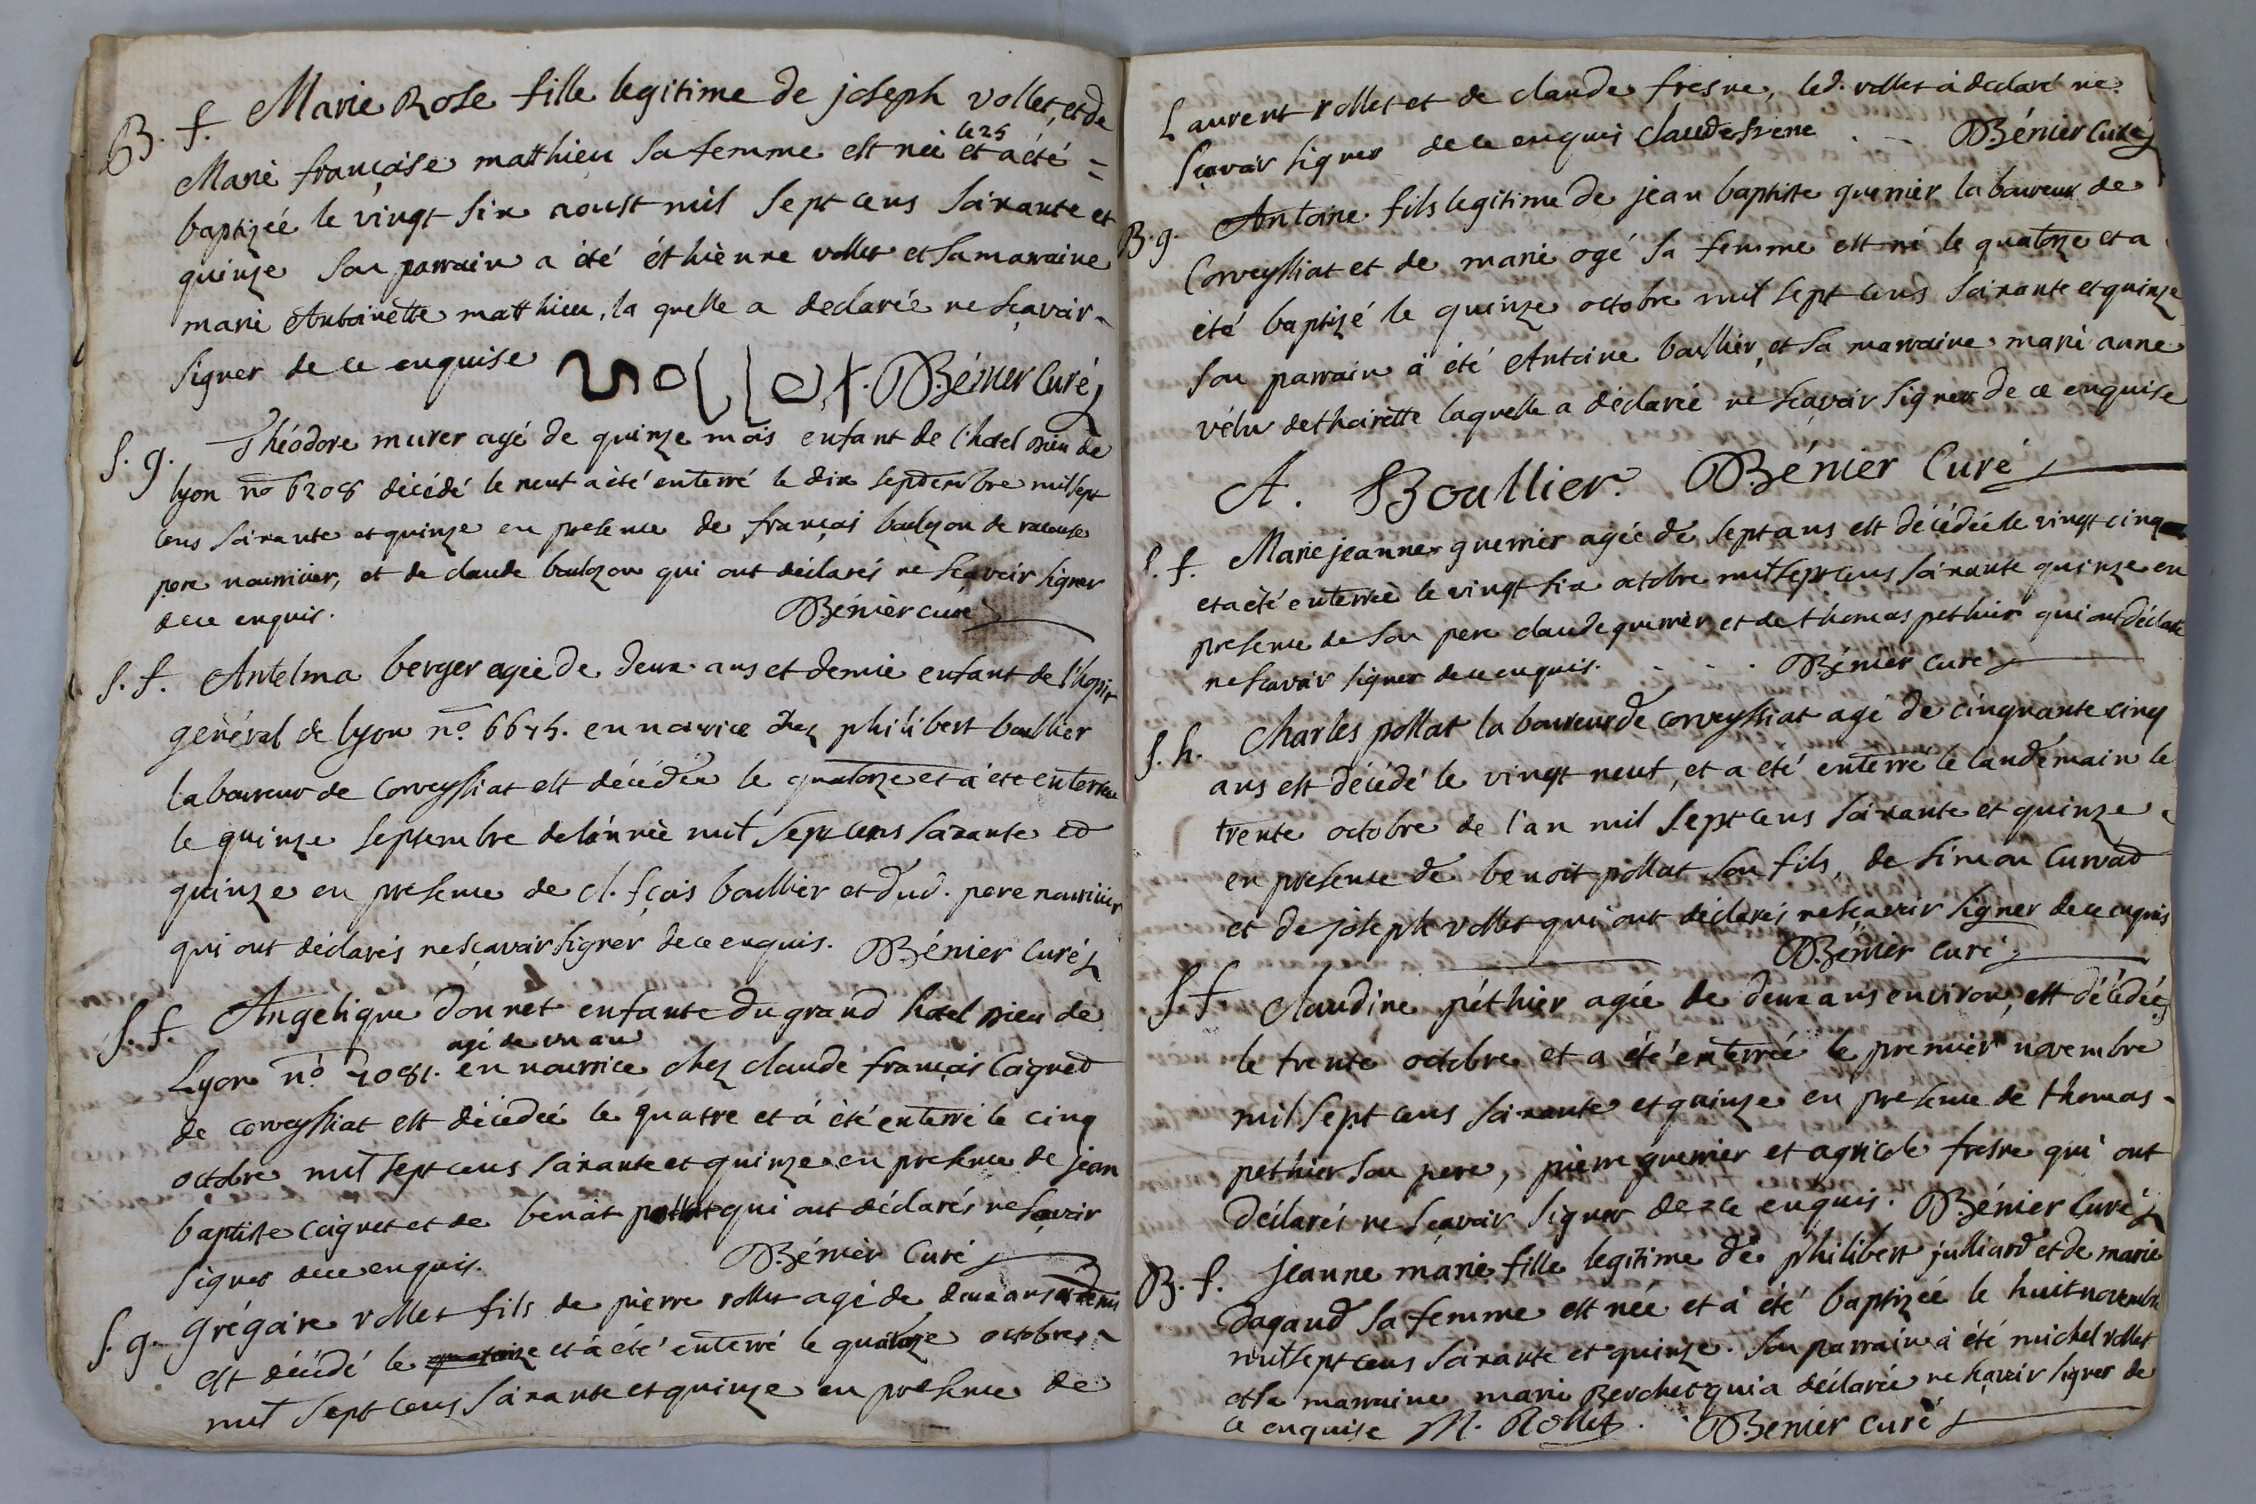 B. f. Marie Rose fille legitime de joseph vollet, et de
Marie françoise matthieu sa femme est née le 25 et a été =
baptizée le vingt six aoust mil sept cens soixante et
quinze son parrain a été éthienne vollet et sa marraine
marie Antoinette matthieu, la quelle a declarée ne sçavoir
signer de ce enquise Bénier Curé
S. g. Théodore murer agé de quinze mois enfant de l'hotel Dieu de
lyon no 6208 décédé le neuf a été enterré le dix septembre mil sept
cens soixante et quinze en presence de françois boulzon de racouse
pere nourricier, et de claude boulzon qui ont déclarés ne sçavoir signer
de ce enquis. Bénier curé
S. f. Antelma berger agée de deux ans et demie enfant de l'hopit
général de lyon no. 6675. en nourrice chez philibert boullier
laboureur de Corveyssiat est décédée le quatorze et a été enterrée
le quinze septembre de l'année mil sept cens soixante et
quinze en presence de cl. fçois boullier et dud. pere nourricier
qui ont déclarés ne sçavoir signer de ce enquis. Bénier Curé
S. f. Angelique donnet enfante du grand hotel Dieu de
Lyon no. 7081. agé de un an en nourrice chez claude françois Coignet
de corveyssiat est décédée le quatre et a été enterré le cinq
octobre mil sept cens soixante et quinze en presence de jean
baptiste coignet et de benoit pollat qui ont déclarés ne sçavoir
signer de ce enquis. Bénier Curé
S. g. Grégoire vollet fils de pierre vollet agé de deux ans et demi
est décédé le quatorze et a été enterré le quatorze octobre
mil sept cens soixante et quinze en presence de
Laurent vollet et de claude fresne, led. vollet a declaré ne
sçavoir signer de ce enquis claude frene Bénier Curé
B. g. Antoine fils legitime de jean baptiste guerrier laboureur de
Corveyssiat et de marie ogé sa femme est né le quatorze et a
été baptizé le quinze octobre mil sept cens soixante et quinze
son parrain a été Antoine boullier, et sa marraine marie anne
vélu de thoirette laquelle a déclarée ne sçavoir signer de ce enquise
A. Boullier. Bénier Curé
S. f. Marie jeanne guerrier agée de sept ans est décédée le vingt cinq
et a été enterrée le vingt six octobre mil sept cens soixante quinze en
presence de son pere claude guerrier et de thomas pethier qui ont déclaré
ne sçavoir signer de ce enquis. Bénier curé
S. h. Charles pollat laboureur de corveyssiat agé de cinquante cinq
ans est décédé le vingt neuf, et a été enterré le landemain le
trente octobre de l'an mil sept cens soixante et quinze
en presence de benoit pollat son fils, de simon Curvat
et de joseph vollet qui ont déclarés ne sçavoir signer de ce enquis
Bénier curé
S. f. Claudine péthier agée de deux ans environ, est décédée
le trente octobre et a été enterrée le premier novembre
mil sept cens soixante et quinze en presence de thomas
pethier son pere, pierre guerrier et agricole fresne qui ont
déclarés ne sçavoir signer de ce enquis. Bénier Curé
B. f. Jeanne marie fille legitime de philibert julliard et de marie
dagaud sa femme est née et a été baptizée le huit novembre
mil sept cens soixante et quinze. Son parrain a été michel vollet
et sa marraine marie Berchet qui a déclarée ne sçavoir signer de
ce enquise M. Rollet. Bénier curé